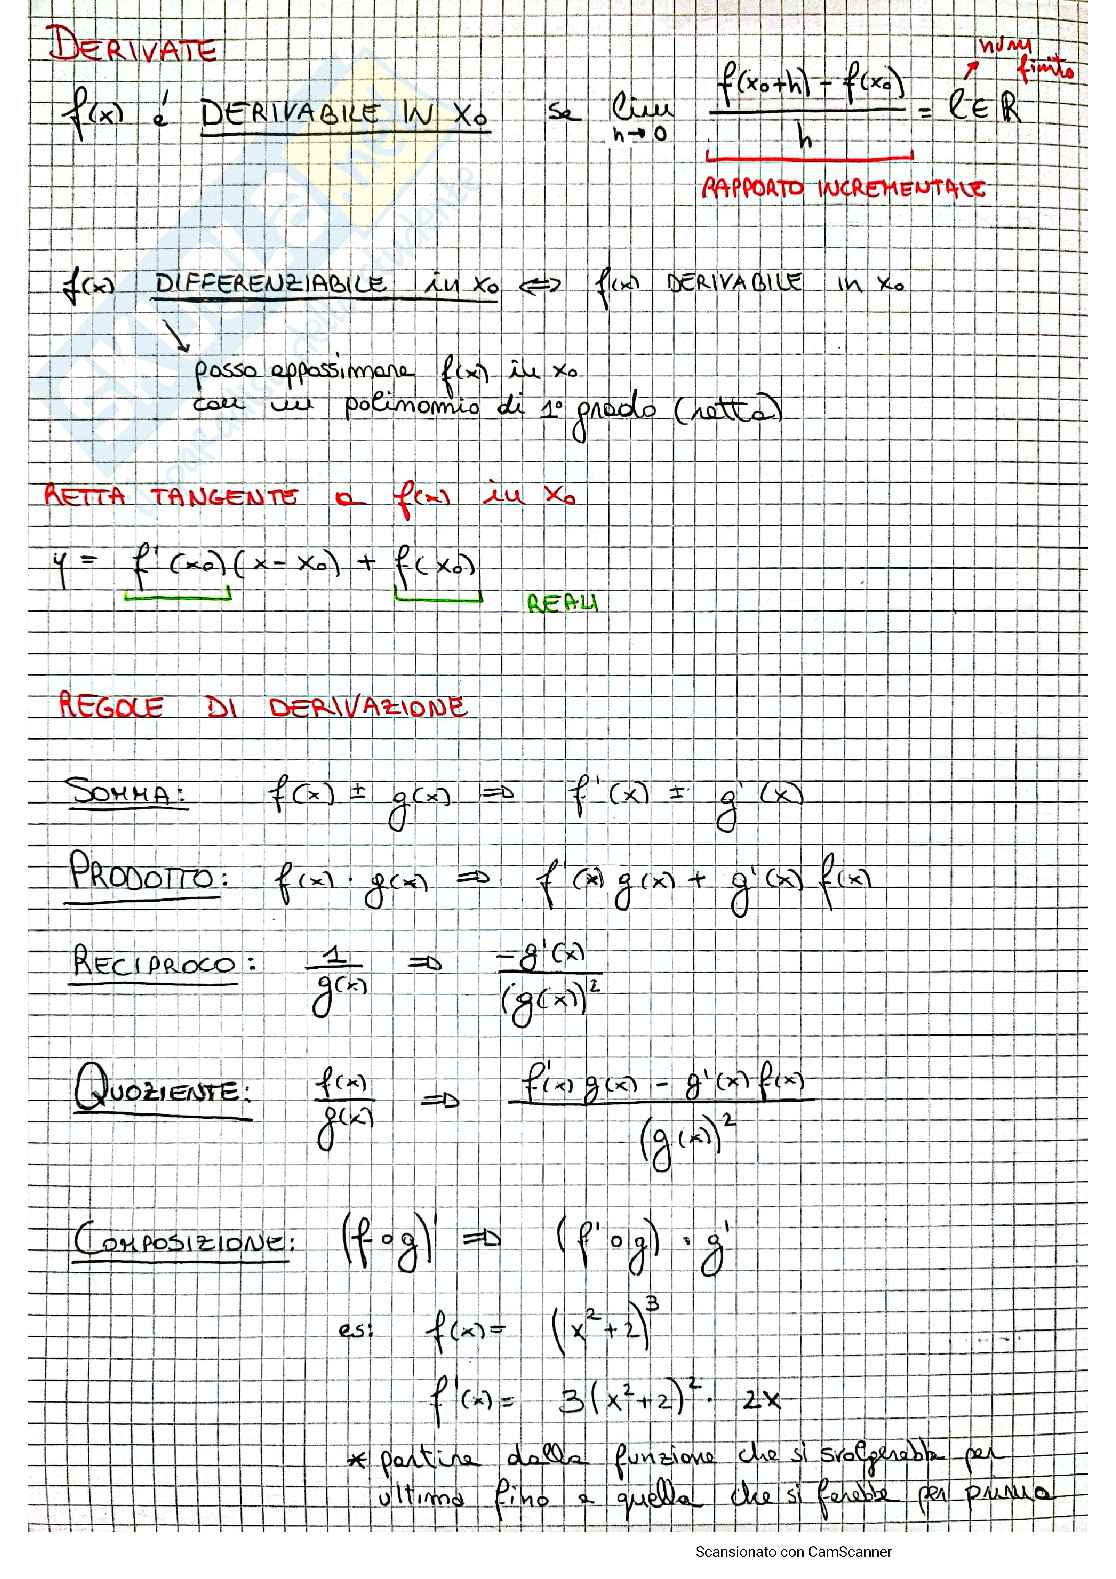 DERIVATE
f(x) é DERIVABILE IN x₀ se lim h→0 (f(x₀+h) - f(x₀))/h = ℓ ∈ ℝ
num finito
RAPPORTO INCREMENTALE
f(x) DIFFERENZIABILE in x₀ ⇔ f(x) DERIVABILE in x₀
posso appossimare f(x) in x₀
con un polinomio di 1° grado (retta)
RETTA TANGENTE a f(x) in x₀
y = f'(x₀)(x-x₀) + f(x₀)
REALI
REGOLE DI DERIVAZIONE
SOMMA: f(x) ± g(x) ⇒ f'(x) ± g'(x)
PRODOTTO: f(x) · g(x) ⇒ f'(x) g(x) + g'(x) f(x)
RECIPROCO: 1/g(x) ⇒ -g'(x)/(g(x))²
QUOZIENTE: f(x)/g(x) ⇒ (f'(x) g(x) - g'(x) f(x))/(g(x))²
COMPOSIZIONE: (f∘g)' ⇒ (f'∘g) · g'
es: f(x) = (x²+2)³
f'(x) = 3(x²+2)² · 2x
* partire dalla funzione che si svolgerebbe per
ultima fino a quella che si farebbe per prima
Scansionato con CamScanner